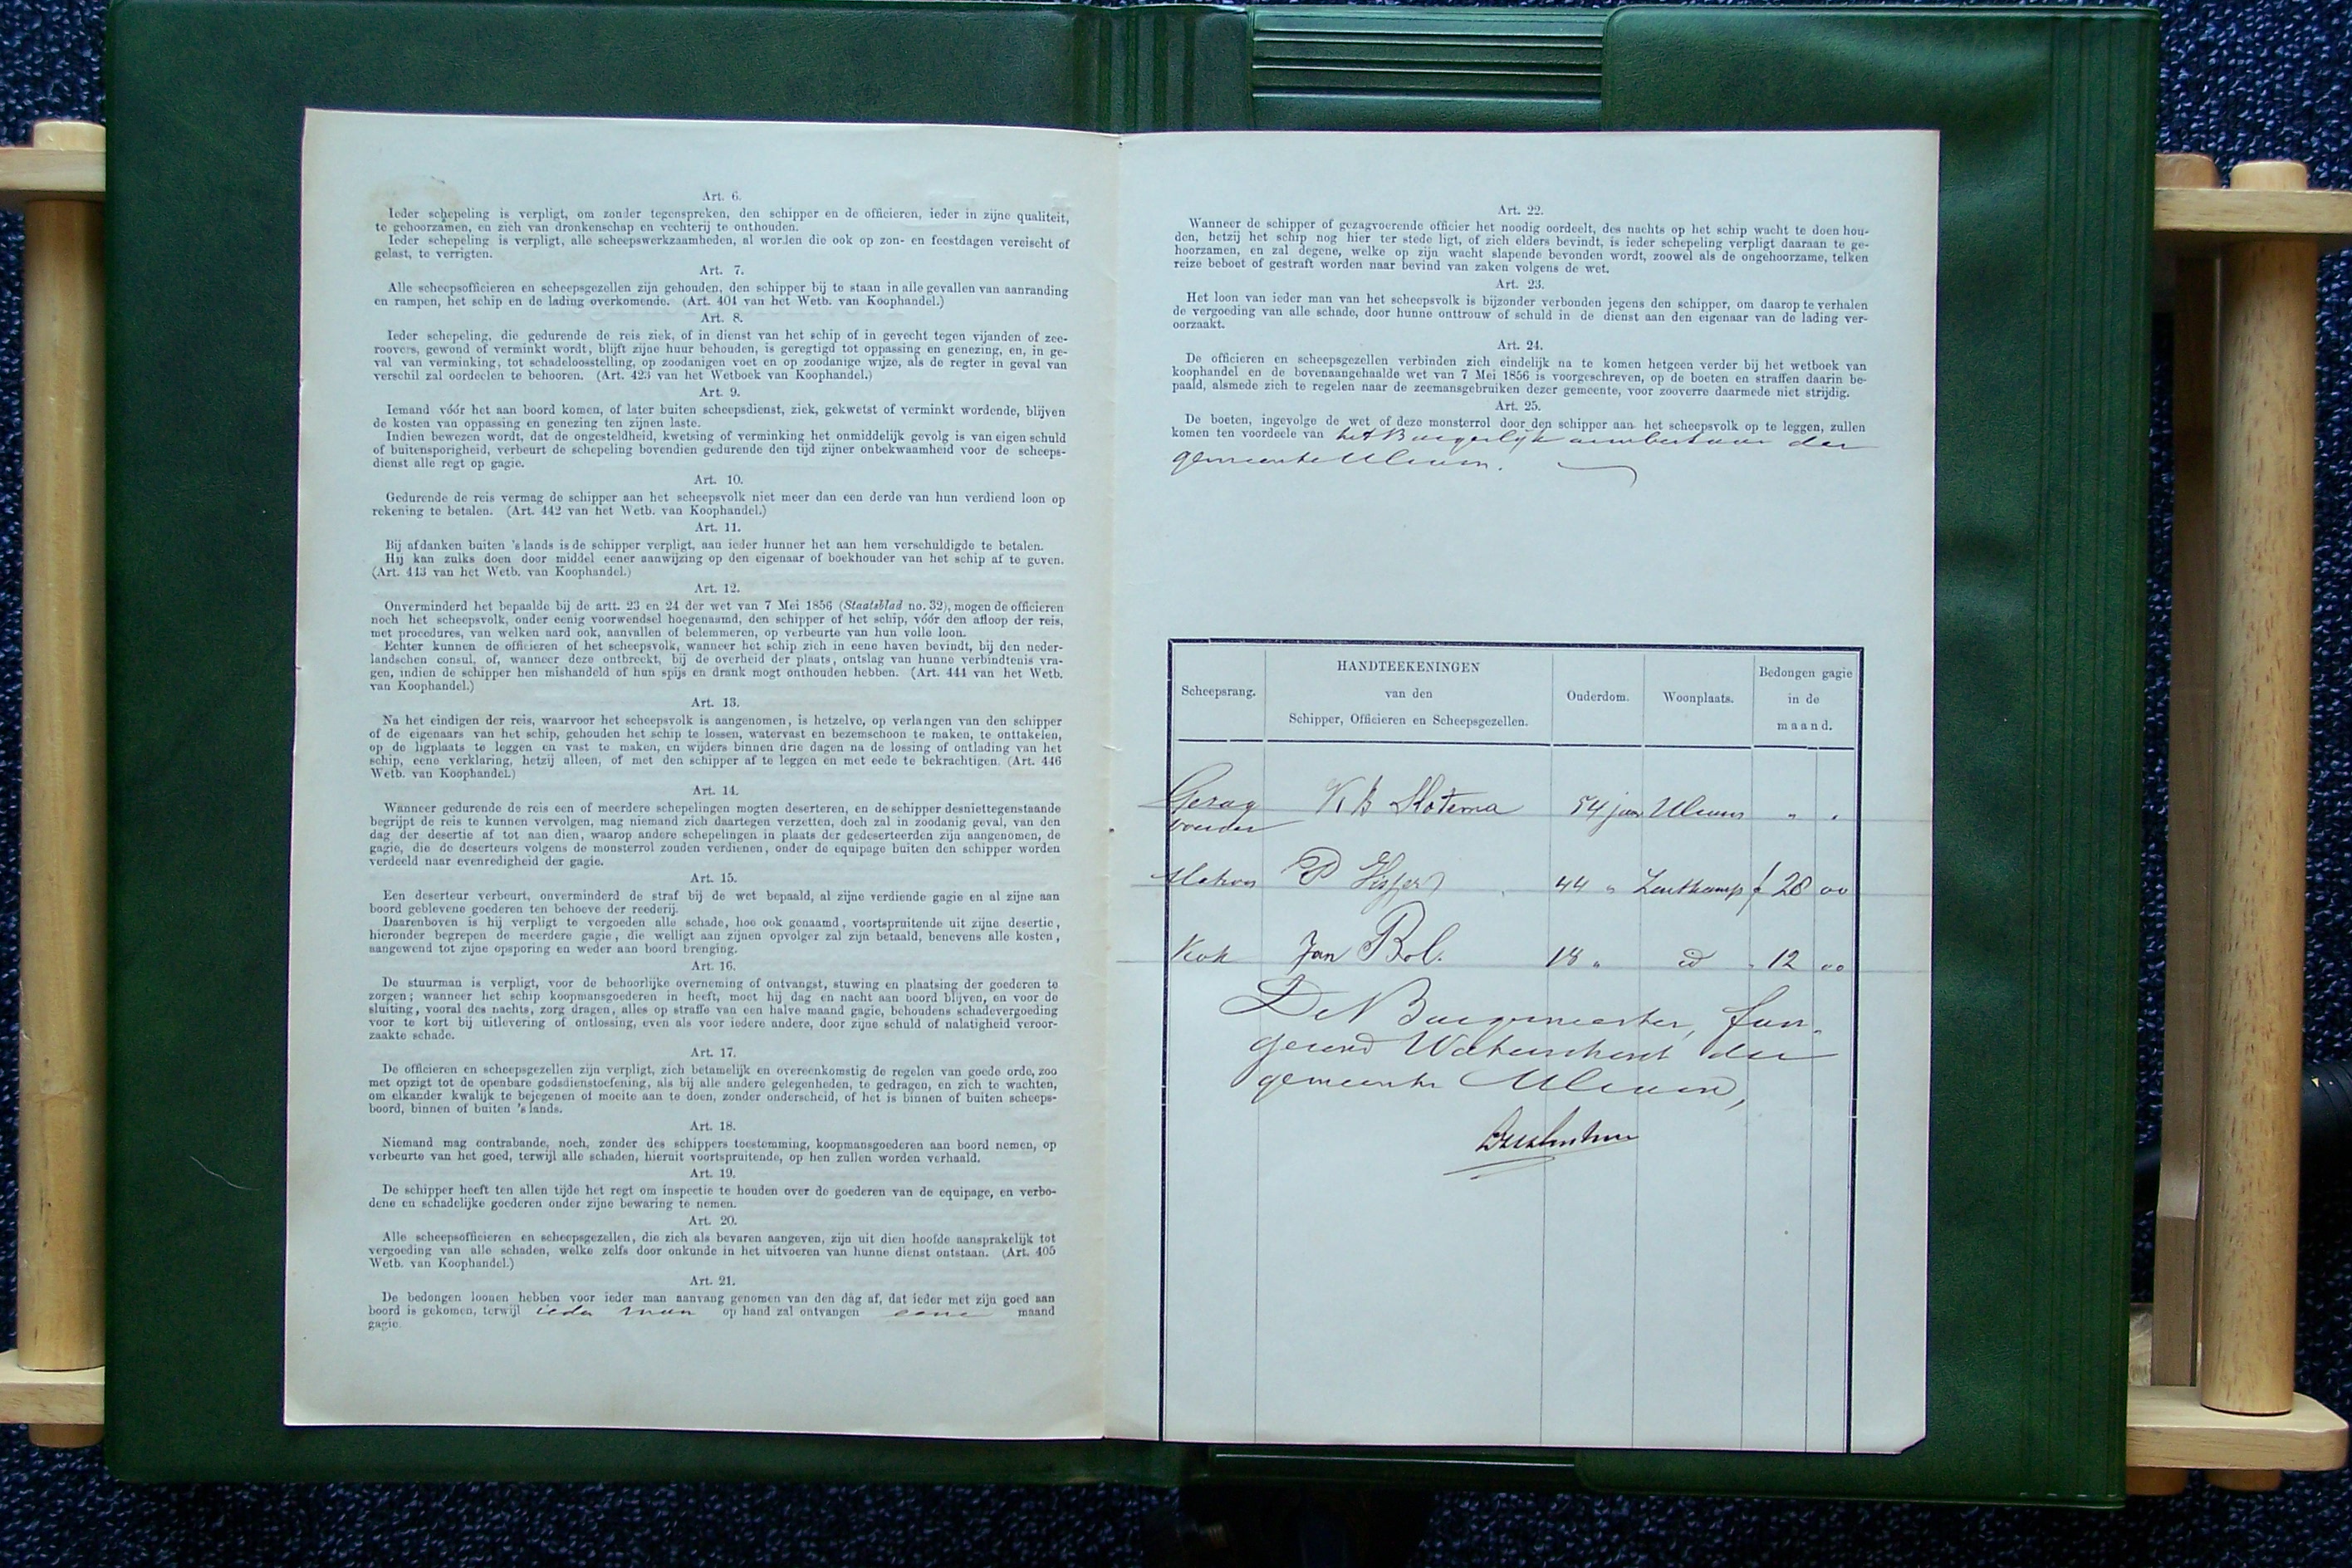 Art. 6.
Ieder schepeling is verpligt, om zonder tegenspreken, den schipper en de officieren, ieder in zijne qualiteit,
te gehoorzamen, en zich van dronkenschap en vechterij te onthouden.
Ieder schepeling is verpligt, alle scheepswerkzaamheden, al worden die ook op zon- en feestdagen vereischt of
gelast, te verrigten.
Art. 7.
Alle scheepsofficieren en scheepsgezellen zijn gehouden, den schipper bij te staan in alle gevallen van aanranding
en rampen, het schip en de lading overkomende. (Art. 401 van het Wetb. van Koophandel.)
Art. 8.
Ieder schepeling, die gedurende de reis ziek, of in dienst van het schip of in gevecht tegen vijanden of zee-
roovers, gewond of verminkt wordt, blijft zijne huur behouden, is geregtigd tot oppassing en genezing, en, in ge-
val van verminking, tot schadeloosstelling, op zoodanigen voet en op zoodanige wijze, als de regter in geval van
verschil zal oordeelen te behooren. (Art. 423 van het Wetboek van Koophandel.)
Art. 9.
Iemand vóór het aan boord komen, of later buiten scheepsdienst, ziek, gekwetst of verminkt wordende, blijven
de kosten van oppassing en genezing ten zijnen laste.
Indien bewezen wordt, dat de ongesteldheid, kwetsing of verminking het onmiddelijk gevolg is van eigen schuld
of buitensporigheid, verbeurt de schepeling bovendien gedurende den tijd zijner onbekwaamheid voor de scheeps-
dienst alle regt op gagie.
Art. 10.
Gedurende de reis vermag de schipper aan het scheepsvolk niet meer dan een derde van hun verdiend loon op
rekening te betalen. (Art. 442 van het Wetb. van Koophandel.)
Art. 11.
Bij afdanken buiten 's lands is de schipper verpligt, aan ieder hunner het aan hem verschuldigde te betalen.
Hij kan zulks doen door middel eener aanwijzing op den eigenaar of boekhouder van het schip af te geven.
(Art. 443 van het Wetb. van Koophandel.)
Art. 12.
Onverminderd het bepaalde bij de artt. 23 en 24 der wet van 7 Mei 1856 (Staatsblad no. 32), mogen de officieren
noch het scheepsvolk, onder eenig voorwendsel hoegenaamd, den schipper of het schip, vóór den afloop der reis,
met procedures, van welken aard ook, aanvallen of belemmeren, op verbeurte van hun volle loon.
Echter kunnen de officieren of het scheepsvolk, wanneer het schip zich in eene haven bevindt, bij den neder-
landschen consul, of, wanneer deze ontbreekt, bij de overheid der plaats, ontslag van hunne verbindtenis vra-
gen, indien de schipper hen mishandeld of hun spijs en drank mogt onthouden hebben. (Art. 444 van het Wetb.
van Koophandel.)
Art. 13.
Na het eindigen der reis, waarvoor het scheepsvolk is aangenomen, is hetzelve, op verlangen van den schipper
of de eigenaars van het schip, gehouden het schip te lossen, watervast en bezemschoon te maken, te onttakelen,
op de ligplaats te leggen en vast te maken, en wijders binnen drie dagen na de lossing of ontlading van het
schip, eene verklaring, hetzij alleen, of met den schipper af te leggen en met eede te bekrachtigen. (Art. 446
Wetb. van Koophandel.)
Art. 14.
Wanneer gedurende de reis een of meerdere schepelingen mogten deserteren, en de schipper desniettegenstaande
begrijpt de reis te kunnen vervolgen, mag niemand zich daartegen verzetten, doch zal in zoodanig geval, van den
dag der desertie af tot aan dien, waarop andere schepelingen in plaats der gedeserteerden zijn aangenomen, de
gagie, die de deserteurs volgens de monsterrol zouden verdienen, onder de equipage buiten den schipper worden
verdeeld naar evenredigheid der gagie.
Art. 15.
Een deserteur verbeurt, onverminderd de straf bij de wet bepaald, al zijne verdiende gagie en al zijne aan
boord geblevene goederen ten behoeve der reederij.
Daarenboven is hij verpligt te vergoeden alle schade, hoe ook genaamd, voortspruitende uit zijne desertie,
hieronder begrepen de meerdere gagie, die welligt aan zijnen opvolger zal zijn betaald, benevens alle kosten,
aangewend tot zijne opsporing en weder aan boord brenging.
Art. 16.
De stuurman is verpligt, voor de behoorlijke overneming of ontvangst, stuwing en plaatsing der goederen te
zorgen; wanneer het schip koopmansgoederen in heeft, moet hij dag en nacht aan boord blijven, en voor de
sluiting, vooral des nachts, zorg dragen, alles op straffe van een halve maand gagie, behoudens schadevergoeding
voor te kort bij uitlevering of ontlossing, even als voor iedere andere, door zijne schuld of nalatigheid veroor-
zaakte schade.
Art. 17.
De officieren en scheepsgezellen zijn verpligt, zich betamelijk en overeenkomstig de regelen van goede orde, zoo
met opzigt tot de openbare godsdienstoefening, als bij alle andere gelegenheden, te gedragen, en zich te wachten,
om elkander kwalijk te bejegenen of moeite aan te doen, zonder onderscheid, of het is binnen of buiten scheeps-
boord, binnen of buiten 's lands.
Art. 18.
Niemand mag contrabande, noch, zonder des schippers toestemming, koopmansgoederen aan boord nemen, op
verbeurte van het goed, terwijl alle schaden, hieruit voortspruitende, op hen zullen worden verhaald.
Art. 19.
De schipper heeft ten allen tijde het regt om inspectie te houden over de goederen van de equipage, en verbo-
dene en schadelijke goederen onder zijne bewaring te nemen.
Art. 20.
Alle scheepsofficieren en scheepsgezellen, die zich als bevaren aangeven, zijn uit dien hoofde aansprakelijk tot
vergoeding van alle schaden, welke zelfs door onkunde in het uitvoeren van hunne dienst ontstaan. (Art. 405
Wetb. van Koophandel.)
Art. 21.
De bedongen loonen hebben voor ieder man aanvang genomen van den dag af, dat ieder met zijn goed aan
boord is gekomen, terwijl ieder man op hand zal ontvangen eene maand
gagie.
Art. 22.
Wanneer de schipper of gezagvoerende officier het noodig oordeelt, des nachts op het schip wacht te doen hou-
den, hetzij het schip nog hier ter stede ligt, of zich elders bevindt, is ieder schepeling verpligt daaraan te ge-
hoorzamen, en zal degene, welke op zijn wacht slapende bevonden wordt, zoowel als de ongehoorzame, telken
reize beboet of gestraft worden naar bevind van zaken volgens de wet.
Art. 23.
Het loon van ieder man van het scheepsvolk is bijzonder verbonden jegens den schipper, om daarop te verhalen
de vergoeding van alle schade, door hunne onttrouw of schuld in de dienst aan den eigenaar van de lading ver-
oorzaakt.
Art. 24.
De officieren en scheepsgezellen verbinden zich eindelijk na te komen hetgeen verder bij het wetboek van
koophandel en de bovenaangehaalde wet van 7 Mei 1856 is voorgeschreven, op de boeten en straffen daarin be-
paald, alsmede zich te regelen naar de zeemansgebruiken dezer gemeente, voor zooverre daarmede niet strijdig.
Art. 25.
De boeten, ingevolge de wet of deze monsterrol door den schipper aan het scheepsvolk op te leggen, zullen
komen ten voordeele van het Burgerlijk armbestuur der
gemeente Ulrum.
Scheepsrang. HANDTEEKENINGEN van den Schipper, Officieren en Scheepsgezellen. Ouderdom. Woonplaats. Bedongen gagie in de maand.
Gezag K B 54 jaar Ulrum " "
voerder
Matroos P 44 " Zoutkamp f 28 00
Kok Jan Bol. 18 " id " 12 00
De Burgemeester, fun-
gerend Waterschout der
gemeente Ulrum,